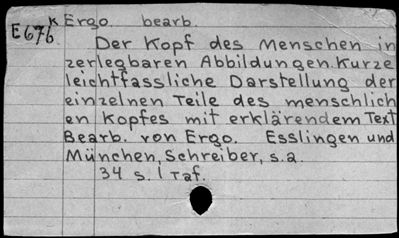 E676 K Ergo bearb.
Der Kopf des Menschen in
zerlegbaren Abbildungen. Kurze
leichtfassliche Darstellung der
einzelnen Teile des menschlich
en Kopfes mit erklärendem Text
Bearb. von Ergo. Esslingen und
München, Schreiber, s.a.
34 s. 1 Taf.